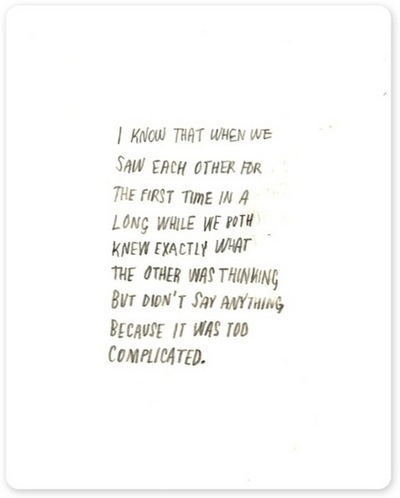 I KNOW THAT WHEN WE
SAW EACH OTHER FOR
THE FIRST TIME IN A
LONG WHILE WE BOTH
KNEW EXACTLY WHAT
THE OTHER WAS THINKING
BUT DIDN'T SAY ANYTHING
BECAUSE IT WAS TOO
COMPLICATED.